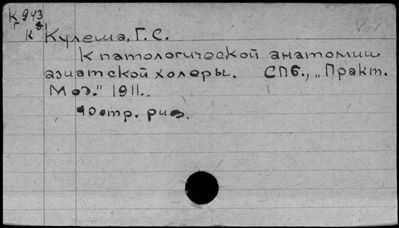 К 943
Г
К 8 Кулеша, Г. С.
К патологической анатомии
азиатской холеры. СПб., „Практ.
Мед." 1911.
40 стр. рис.